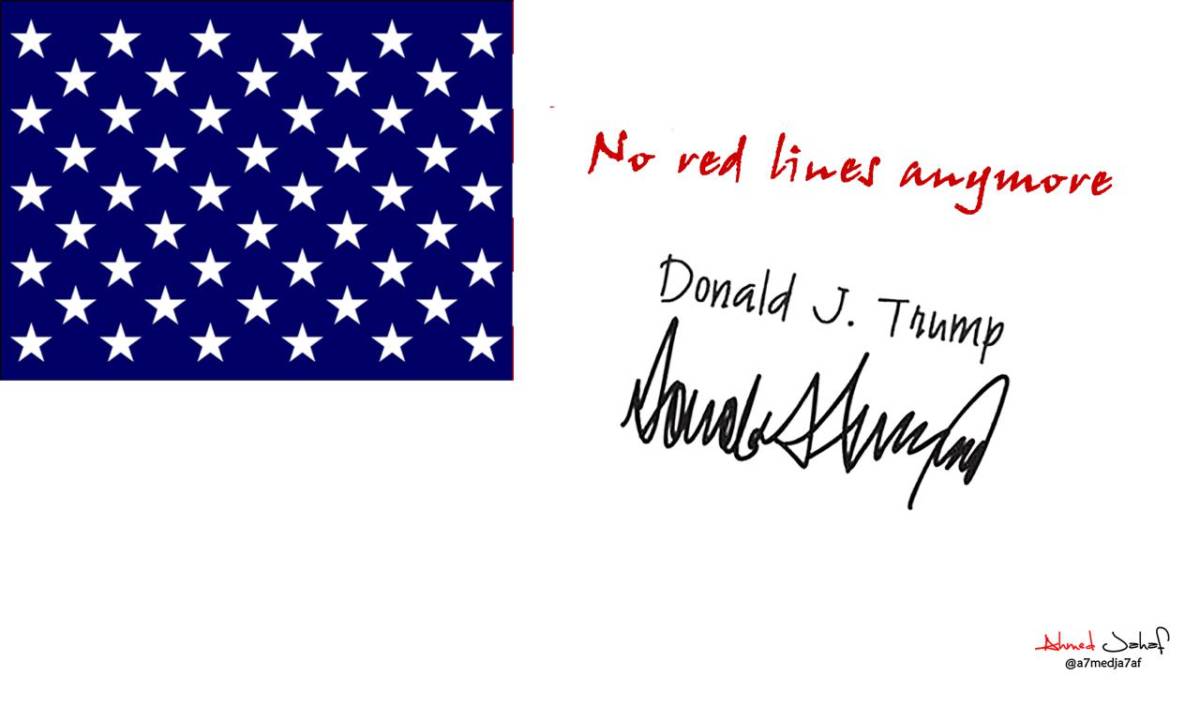 No red lines anymore
Donald J. Trump
Ahmed Jahaf
@a7medja7af